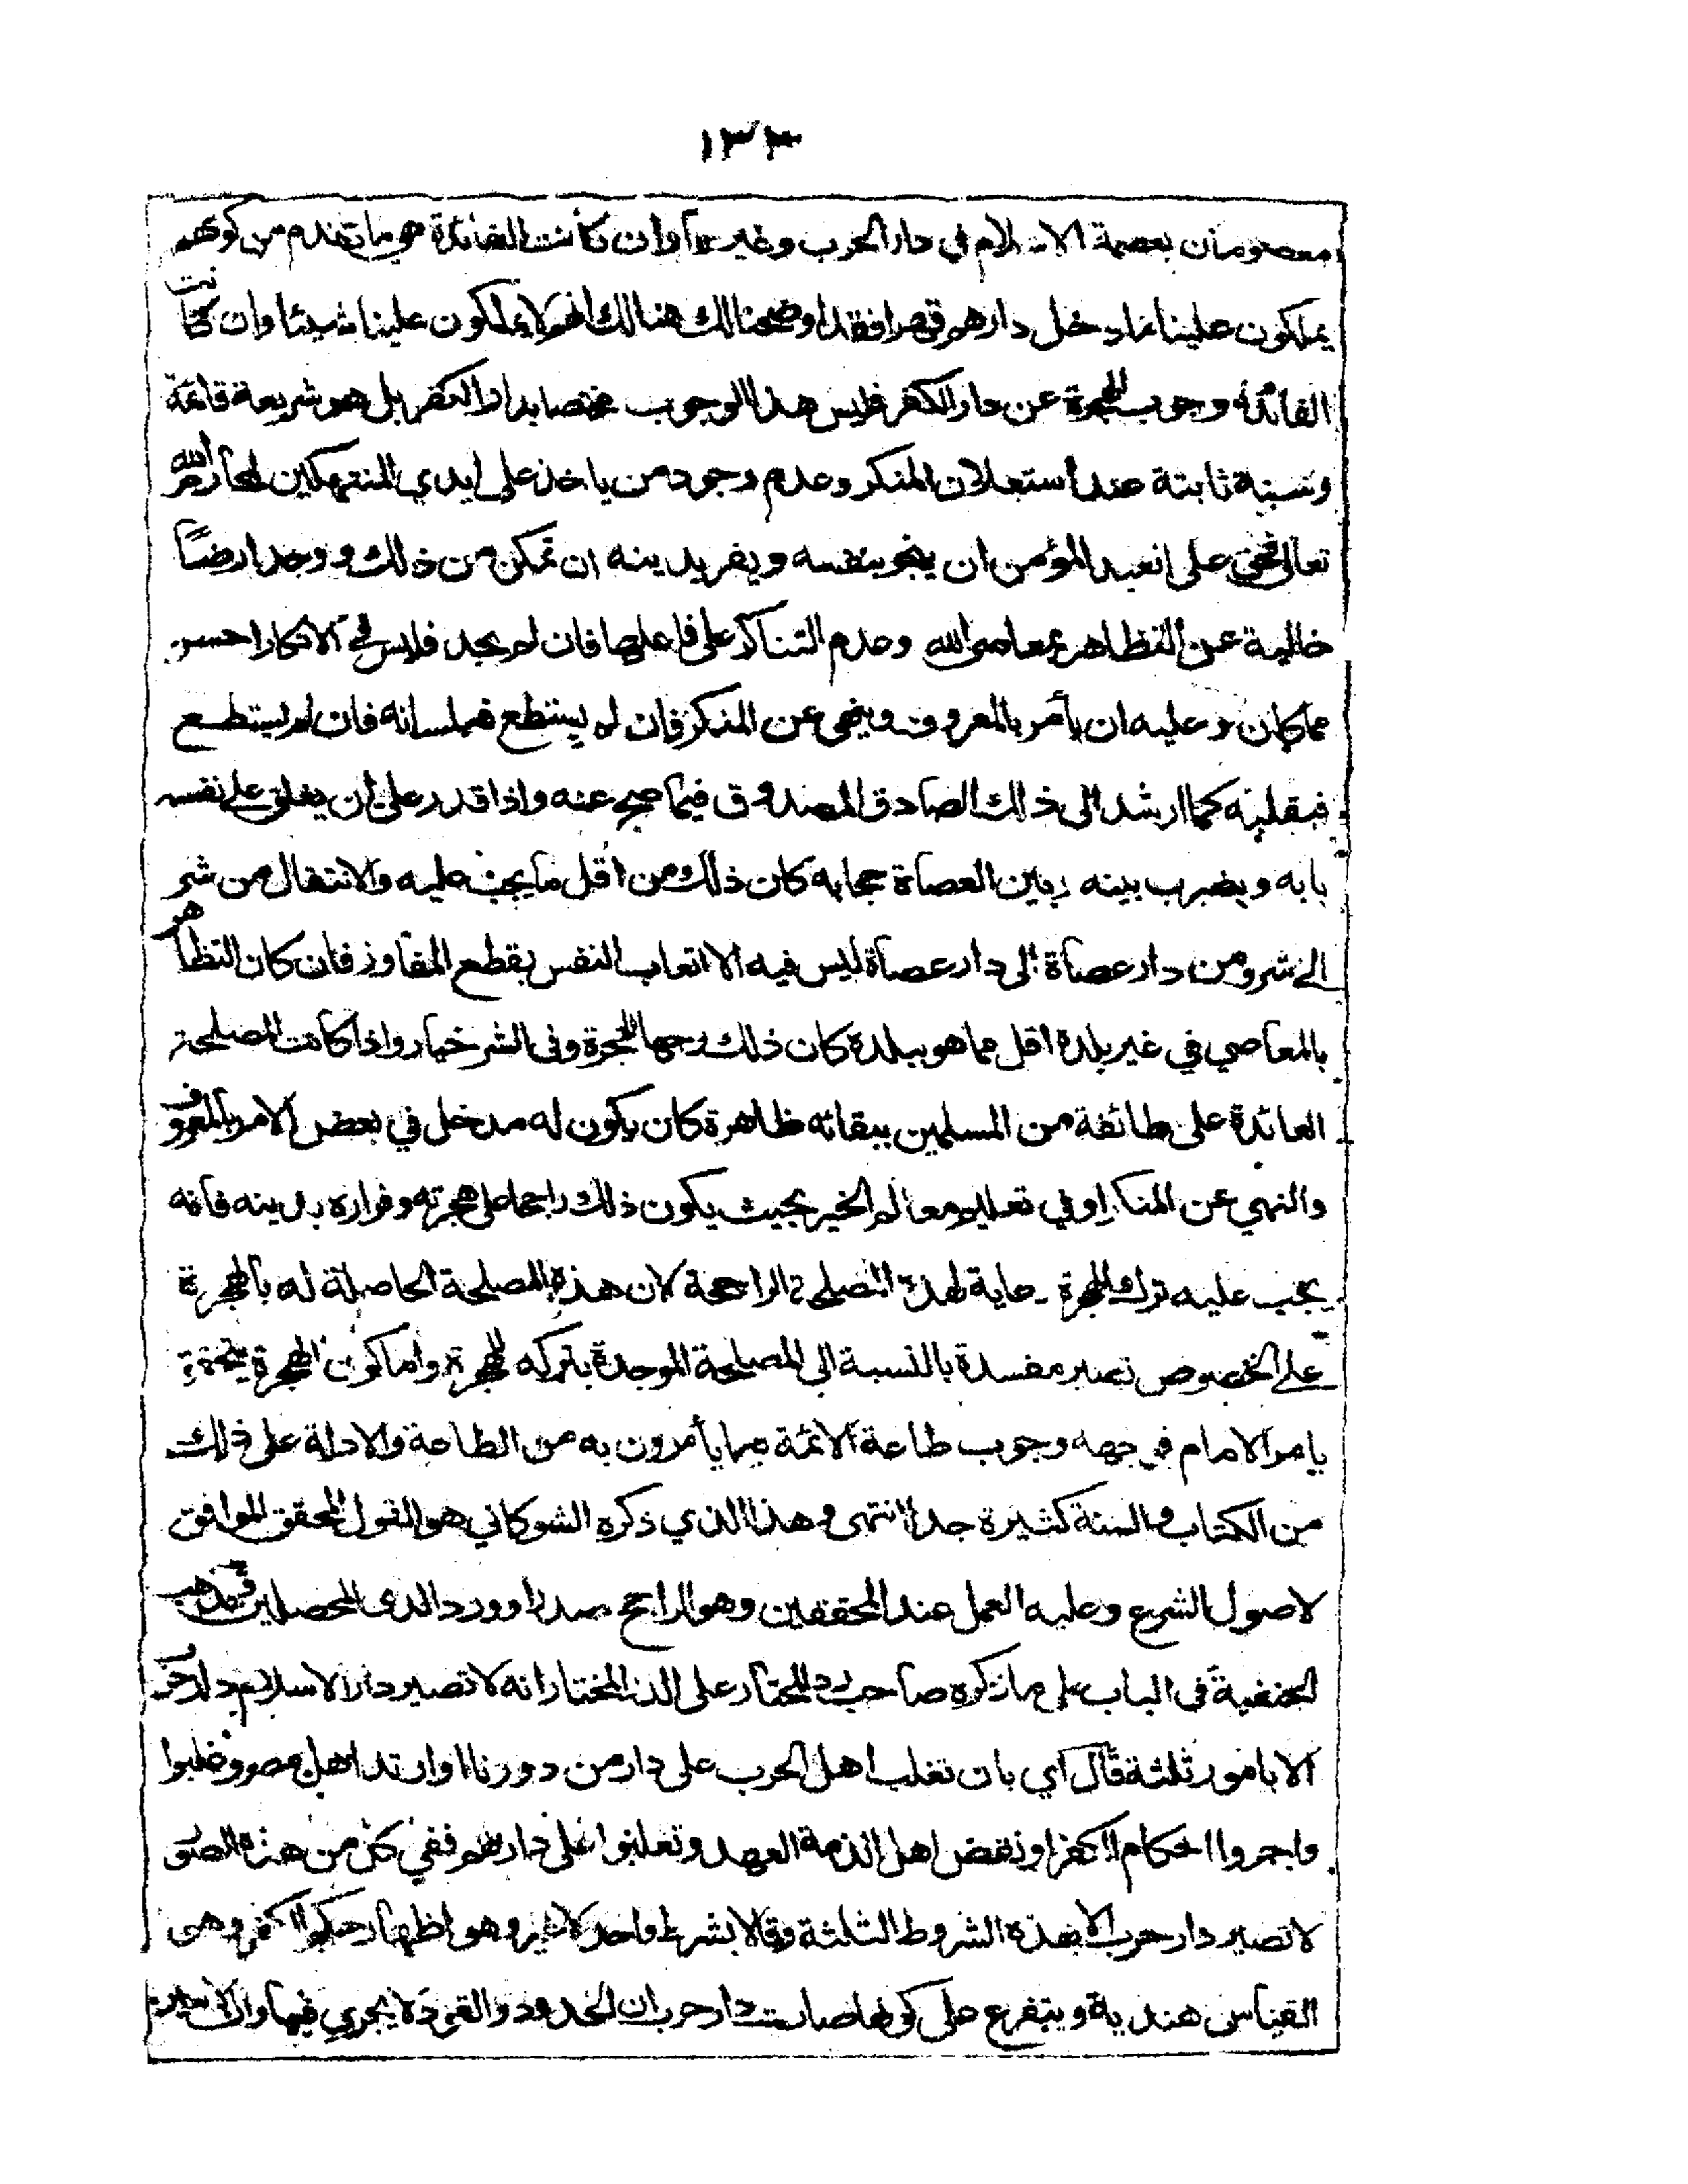 ١٣٣
معصومان بعصمة الاسلام في دار الحرب وغيرها وان كانت الفائدة هي ما تقدم من كونهم
يملكون علينا ما دخل دارهم قهرا فقد اوضحنا لك هنالك انهم لا يملكون علينا شيئا وان كانت
الفائدة وجوب الهجرة عن دار الكفر فليس هذا الوجوب مختصا بدار الكفر بل هو شريعة قائمة
وسنة ثابتة عند استعلان المنكر وعدم وجود من ياخذ على ايدي المنتهكين لمحارم الله
تعالى فحق على العبد المؤمن ان ينجو بنفسه ويفر بدينه ان تمكن من ذلك ووجد ارضًا
خالية عن التظاهر بمعاصي الله وعدم التناكر على فاعلها فان لم يجد فليس في الامكان احسن
مما كان وعليه ان يأمر بالمعروف وينهى عن المنكر فان لم يستطع فبلسانه فان لم يستطع
فبقلبه كما ارشد الى ذلك الصادق المصدوق فيما صح عنه واذا قدر على ان يغلق على نفسه
بابه ويضرب بينه وبين العصاة حجابه كان ذلك من اقل ما يجب عليه والانتقال من شر
الى شر ومن دار عصاة الى دار عصاة ليس فيه الا اتعاب النفس بقطع المفاوز فان كان التظاهر
بالمعاصي في غير بلدة اقل مما هو ببلدة كان ذلك وجها للهجرة وفي الشر خيار واذا كانت المصلحة
العائدة على طائفة من المسلمين ببقائه ظاهرة كان يكون له مدخل في بعض الامر بالمعروف
والنهي عن المنكر او في تعليم معالم الخير بحيث يكون ذلك راجحا على هجرته وفراره بدينه فانه
يجب عليه ترك الهجرة رعاية لهذه المصلحة الراجحة لان هذه المصلحة الحاصلة له بالهجرة
على الخصوص تصير مفسدة بالنسبة الى المصلحة الموجدة بتركه للهجرة واما كون الهجرة
يامر الامام فوجهه وجوب طاعة الائمة فيما يأمرون به من الطاعة والادلة على ذلك
من الكتاب والسنة كثيرة جدا انتهى وهذا الذي ذكره الشوكاني هو القول المحقق الموافق
لاصول الشرع وعليه العمل عند المحققين وهو الراجح صدرا ووردا لدى المحصلين ومذهب
الحنفية في الباب على ما ذكره صاحب رد المحتار على الدر المختار انه لا تصير دار الاسلام دار حرب
الا بامور ثلثة قال اي بان تغلب اهل الحرب على دار من دورنا او ارتد اهل مصر وغلبوا
واجروا احكام الكفر او نقض اهل الذمة العهد وتغلبوا على دارهم ففي كل من هذه الصور
لا تصير دار حرب الا بهذه الشروط الثلثة وقالا بشرط واحد لا غير وهو اظهار حكم الكفر وهو
القياس هندية ويتفرع على كونها صارت دار حرب ان الحدود والقود لا يجري فيها وان